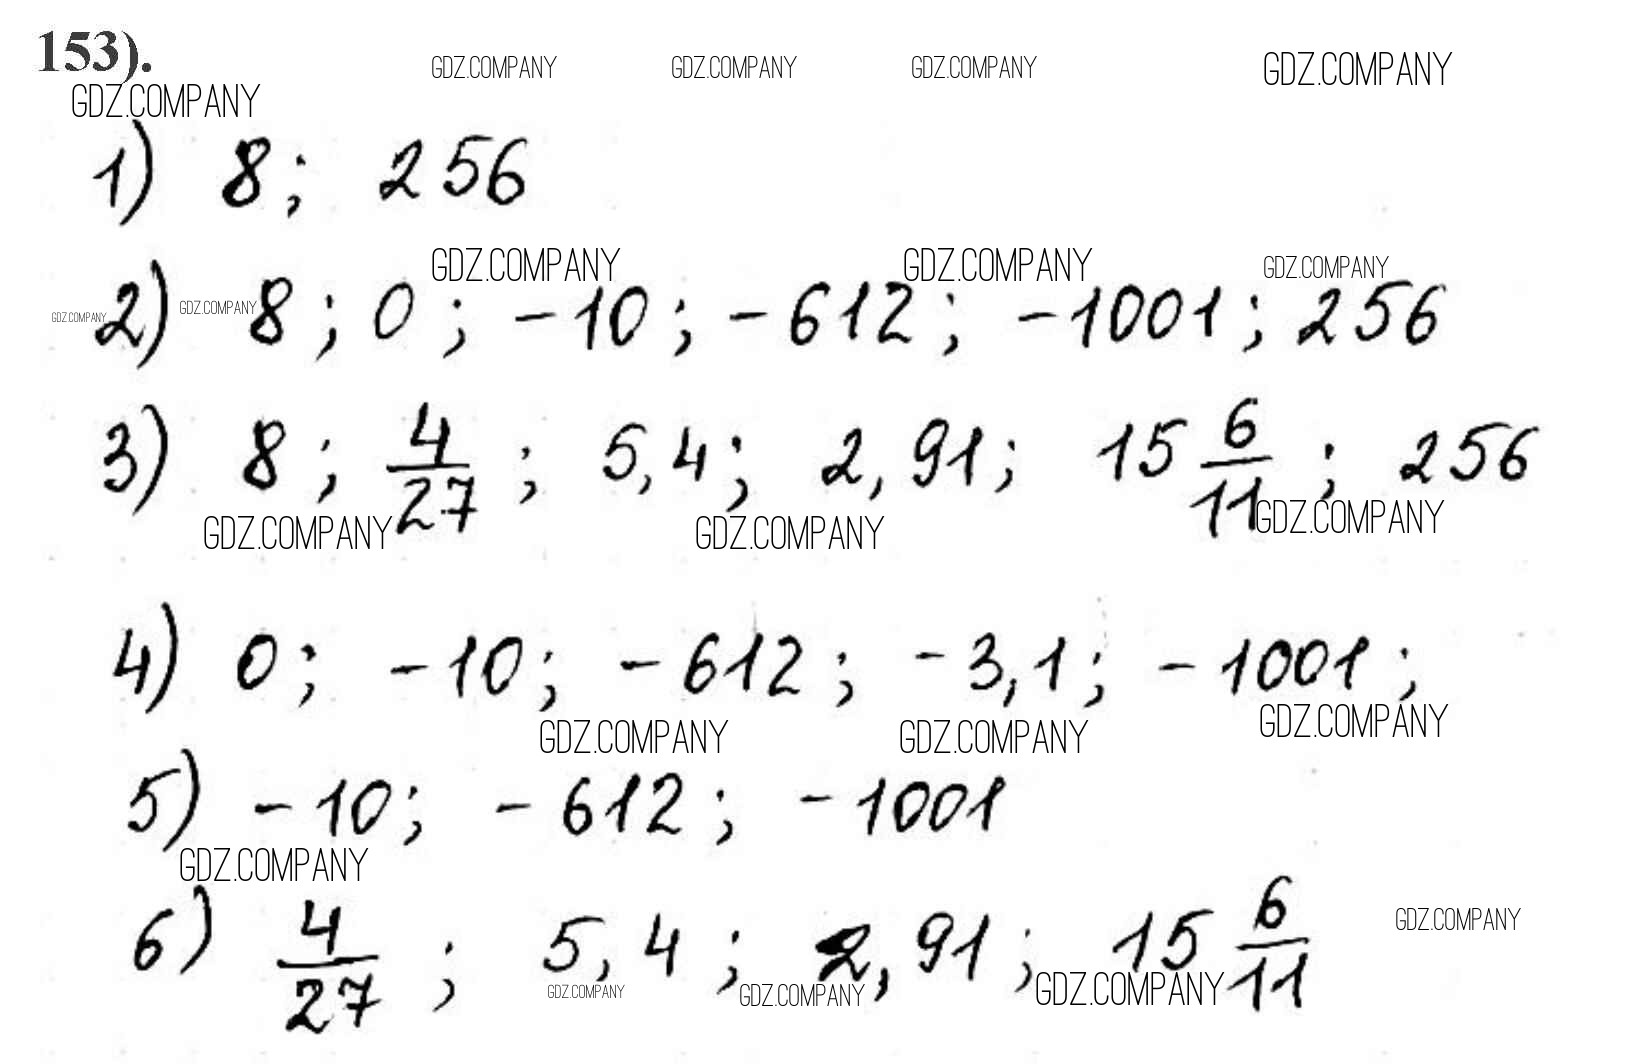 153).
GDZ.COMPANY GDZ.COMPANY GDZ.COMPANY GDZ.COMPANY
GDZ.COMPANY
1) 8; 256
GDZ.COMPANY GDZ.COMPANY GDZ.COMPANY
GDZ.COMPANY GDZ.COMPANY
2) 8; 0; -10; -612; -1001; 256
3) 8; 4/27; 5,4; 2,91; 15 6/11; 256
GDZ.COMPANY GDZ.COMPANY GDZ.COMPANY
4) 0; -10; -612; -3,1; -1001;
GDZ.COMPANY GDZ.COMPANY GDZ.COMPANY
5) -10; -612; -1001
GDZ.COMPANY
GDZ.COMPANY
6) 4/27; 5,4; 2,91; 15 6/11
GDZ.COMPANY GDZ.COMPANY GDZ.COMPANY